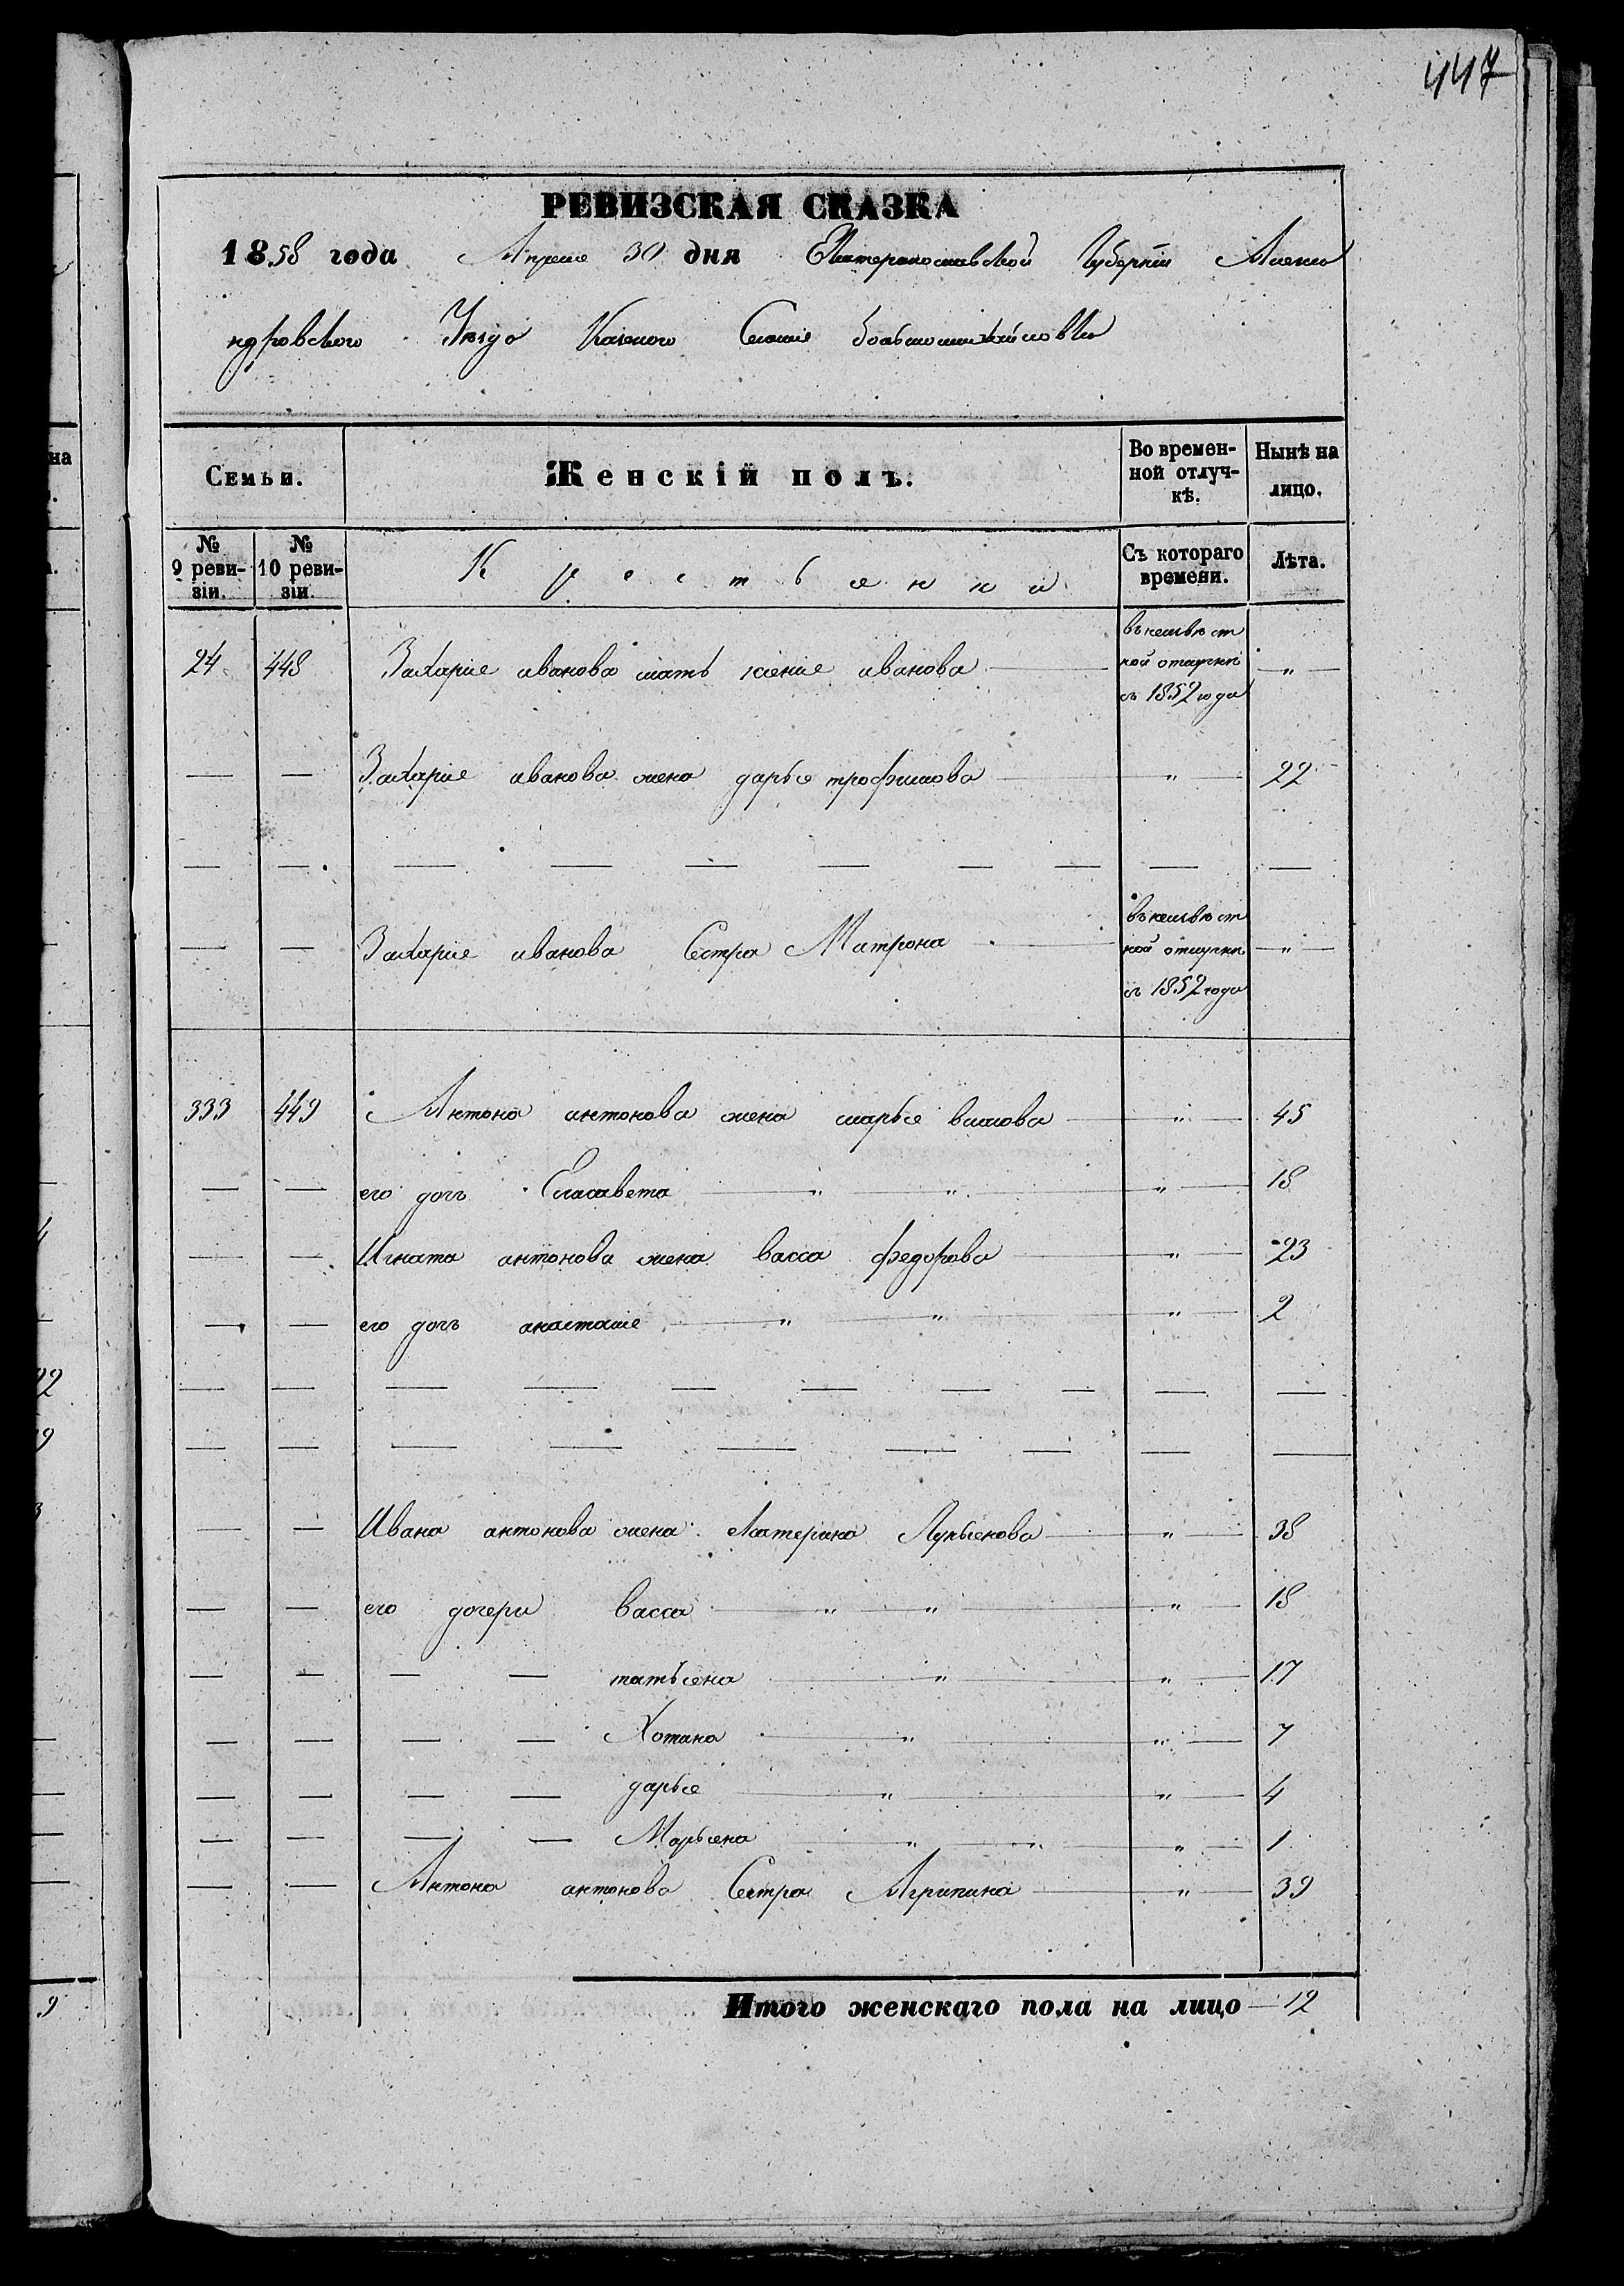 447
РЕВИЗСКАЯ СКАЗКА
1858 года Апреля 30 дня Екатеринославской Губерніи Алекса
ндровского Уезда Казеного Селенія Большемихайловки
Семьи. Женскій полъ. Во времен-ной отлуч-кѣ. Нынѣ на лицо.
№ 9 реви-зіи. № 10 реви-зіи. Крестьянки Съ котораго времени. Лѣта.
24 448 Захарія иванова мать ксенія иванова въ неизвѣст ной отлучки съ 1852 года "
— — Захарія иванова жена дарья трофимова " 22
— — — — — — — — — —
— — Захарія иванова Сестра Матрона въ неизвѣст ной отлучки съ 1852 года "
333 449 Антона антонова жена марья " 45
— — его дочь Елисавета " " " 18
— — Игната антонова жена васса федорова " 23
— — его дочь анастасія " " " 2
— — — — — — — — — —
— — — — — — — — — —
— — Ивана антонова жена Екатерина Лукьянова " 38
— — его дочери васса " " " 18
— — — — татьяна " " 17
— — — — Хотина " " 7
— — — — дарья " " 4
— — — — Марьяна " " " 1
— — Антона антонова Сестра Агрипина " 39
Итого женскаго пола на лицо — 12